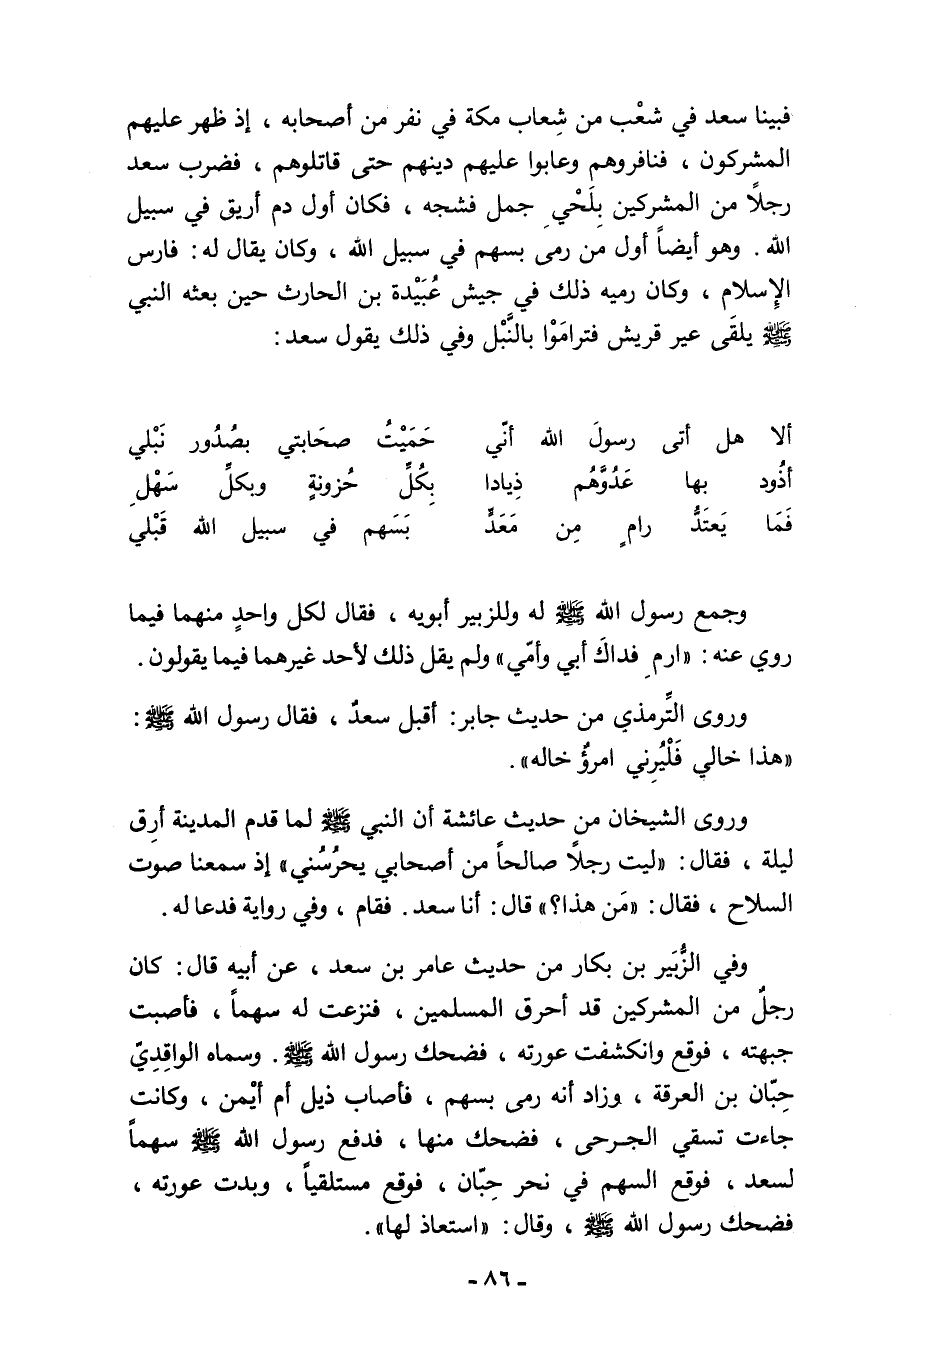 فبينا سعد في شعْب من شِعاب مكة في نفر من أصحابه ، إذ ظهر عليهم
المشركون ، فنافروهم وعابوا عليهم دينهم حتى قاتلوهم ، فضرب سعد
رجلاً من المشركين بِلَحْيِ جمل فشجه ، فكان أول دم أريق في سبيل
الله . وهو أيضاً أول من رمى بسهم في سبيل الله ، وكان يقال له : فارس
الإِسلام ، وكان رميه ذلك في جيش عُبَيْدة بن الحارث حين بعثه النبي
ﷺ يلقَى عير قريش فترامَوْا بالنَّبْل وفي ذلك يقول سعد :
ألا هل أتى رسولَ الله أنّي حَمَيْتُ صحَابتي بصُدُور نَبْلي
أذُود بها عَدُوَّهُم ذِيادا بِكُلِّ حُزونةٍ وبكلِّ سَهْلِ
فَمَا يَعتَدُّ رامٍ مِن مَعَدٍّ بَسَهم في سبيل الله قَبْلي
وجمع رسول الله ﷺ له وللزبير أبويه ، فقال لكل واحدٍ منهما فيما
روي عنه : «ارمِ فداكَ أبي وأمّي» ولم يقل ذلك لأحد غيرهما فيما يقولون .
وروى التِّرمذي من حديث جابر : أقبل سعدٌ ، فقال رسول الله ﷺ :
«هذا خالي فَلْيُرِني امرؤٌ خاله» .
وروى الشيخان من حديث عائشة أن النبي ﷺ لما قدم المدينة أرِق
ليلة ، فقال : «ليت رجلاً صالحاً من أصحابي يحرُسُني» إذ سمعنا صوت
السلاح ، فقال : «مَن هذا؟» قال : أنا سعد . فقام ، وفي رواية فدعا له .
وفي الزُّبَير بن بكار من حديث عامر بن سعد ، عن أبيه قال : كان
رجلٌ من المشركين قد أحرق المسلمين ، فنزعت له سهماً ، فأصبت
جبهته ، فوقع وانكشفت عورته ، فضحك رسول الله ﷺ . وسماه الواقِدِيّ
حِبّان بن العرقة ، وزاد أنه رمى بسهم ، فأصاب ذيل أم أيْمن ، وكانت
جاءت تسقي الجرحى ، فضحك منها ، فدفع رسول الله ﷺ سهماً
لسعد ، فوقع السهم في نحر حِبّان ، فوقع مستلقياً ، وبدت عورته ،
فضحك رسول الله ﷺ ، وقال : «استعاذ لها» .
- ٨٦ -